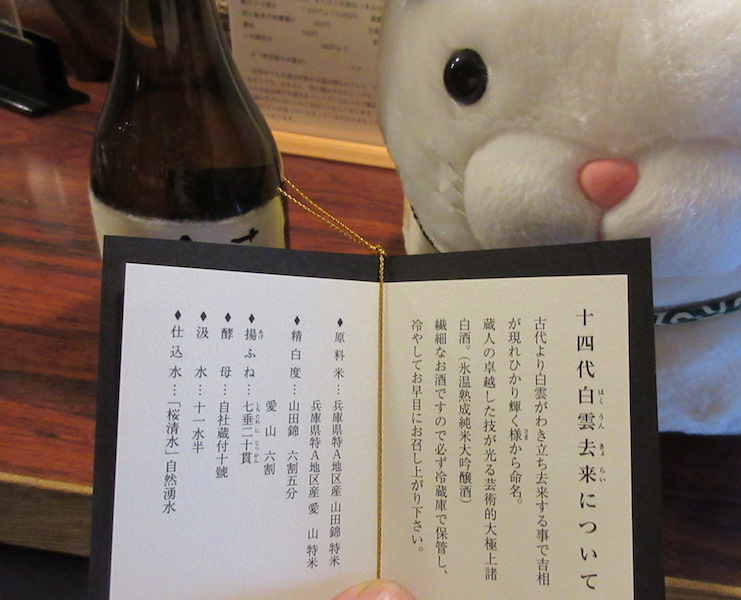 十四代白雲去来について
はくうんきょらい
古代より白雲がわき立ち去来する事で吉相
が現れひかり輝く様から命名。
さま
蔵人の卓越した技が光る芸術的大極上諸
白酒。(氷温熟成純米大吟醸酒)
繊細なお酒ですので必ず冷蔵庫で保管し、
冷やしてお早目にお召し上がり下さい。
♦原料米…兵庫県特A地区産 山田錦 特米
兵庫県特A地区産 愛山 特米
♦精白度…山田錦 六割五分
愛山 六割
♦揚ふね…七垂二十貫
あげ
しちだれにじっかん
♦酵母…自社蔵付十號
♦汲水…十一水半
♦仕込水…「桜清水」自然湧水